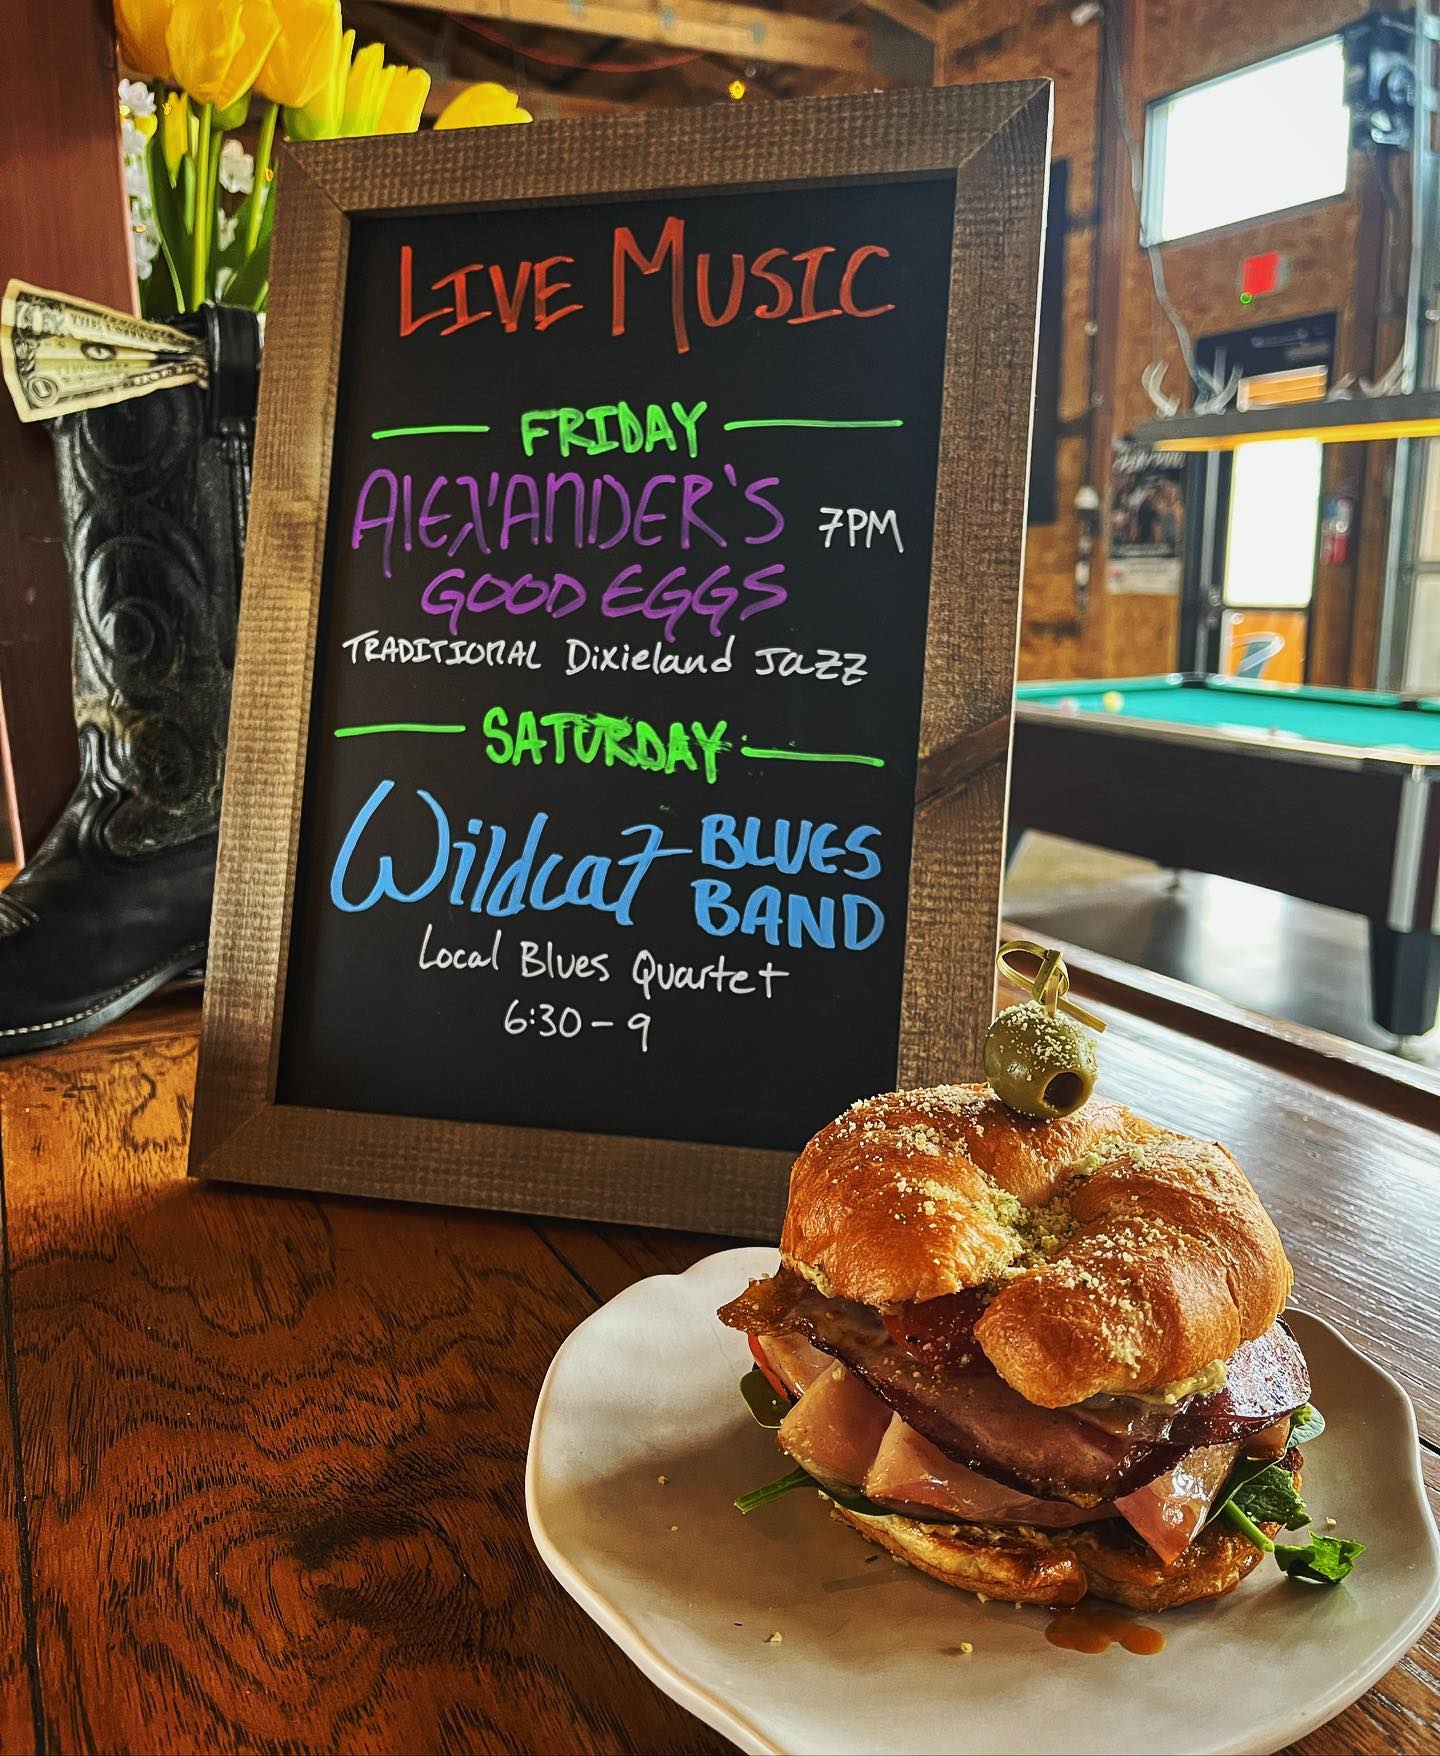 LIVE MUSIC
FRIDAY
ALEXANDER'S 7PM
GOOD EGGS
TRADITIONAL Dixieland Jazz
SATURDAY
Wildcat BLUES
BAND
Local Blues Quartet
6:30 - 9